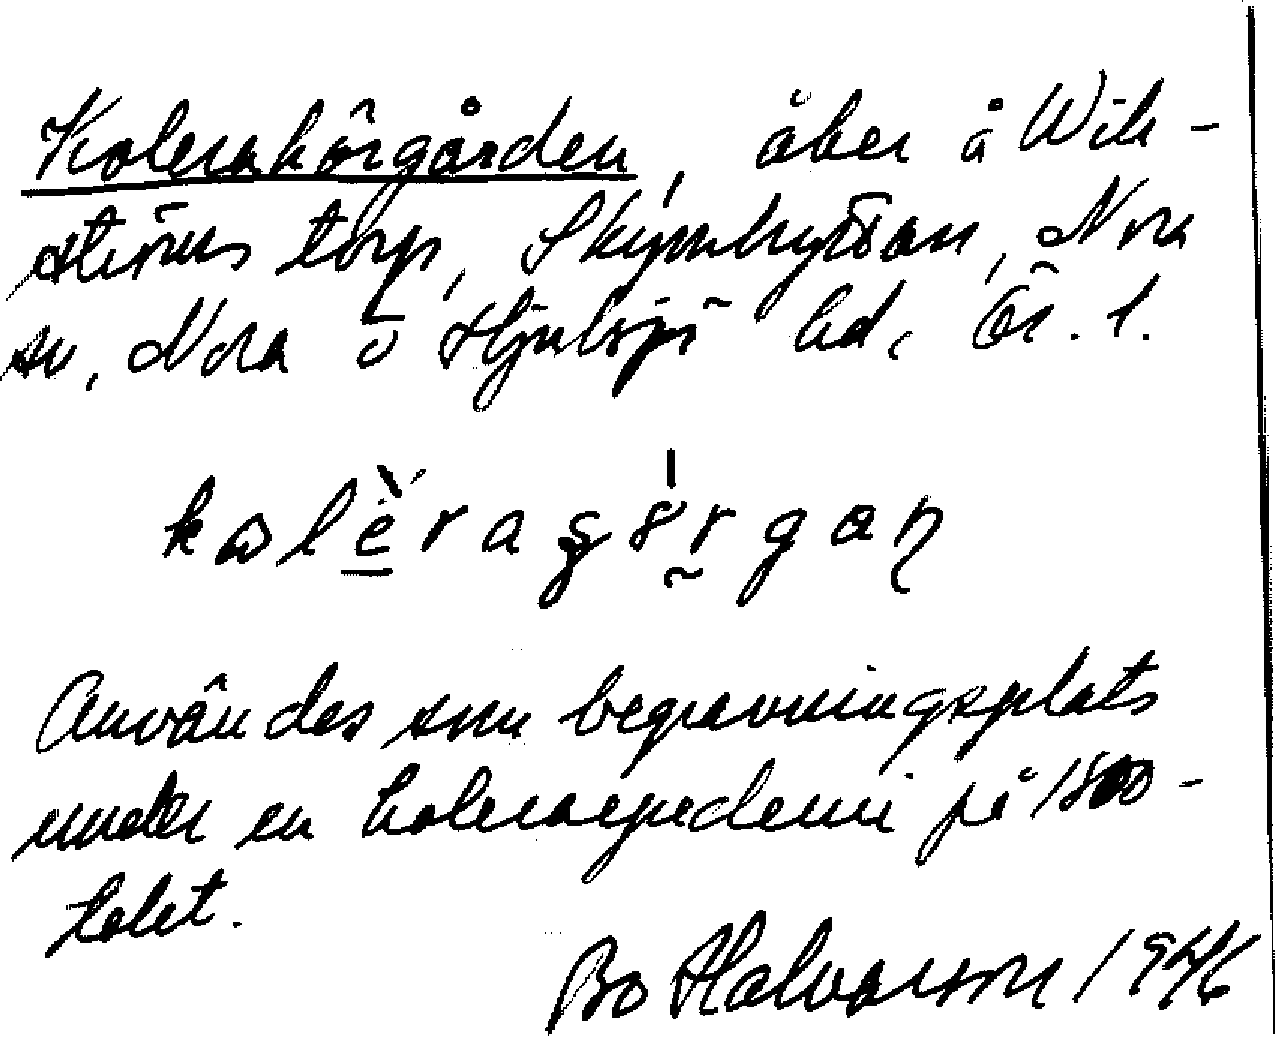 Kolerakörgården, åker å Wik-
ströms torp, Skymhyttan, Nora
sn, Nora o Hjulsjö bd, Ör. l.
Användes som begravningsplats
under en koleraepedemi på 1800-
talet.
Bo Halvarson 1946